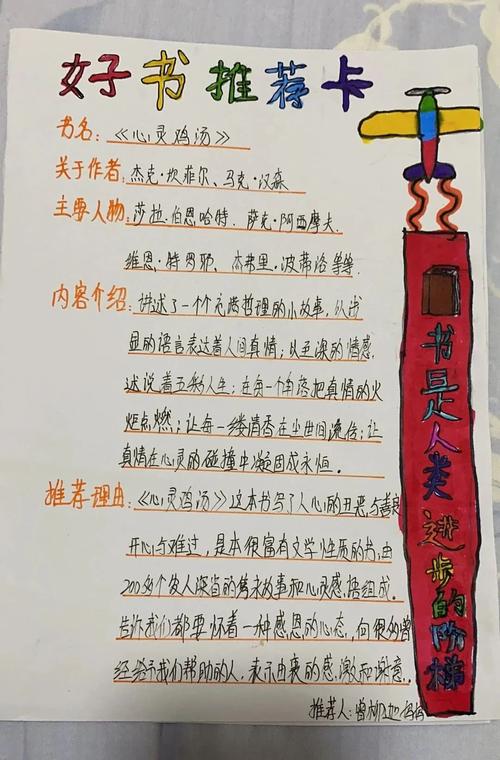 好书推荐卡
书名:《心灵鸡汤》
关于作者:杰克·坎菲尔、马克·汉森
主要人物:莎拉.伯恩哈特.萨克·阿西摩夫.
维恩.特罗耶、杰弗里·波蒂洛等等.
内容介绍:讲述了一个个充满哲理的小故事,以浅
显的语言表达着人间真情;以至深的情感,
述说着五彩人生;在每一个角落把真情的火
炬点燃;让每一缕清香在尘世间流传;让
真情在心灵的碰撞中凝固成永恒。
推荐理由:《心灵鸡汤》这本书写了人心的丑恶与善良
开心与难过,是本很富有文学性质的书,由
200多个发人深省的隽永故事和心灵感悟组成。
告诉我们都要怀着一种感恩的心态,向很多曾
经给予我们帮助的人,表示由衷的感激和谢意.
推荐人:曾柳
书是人类进步的阶梯